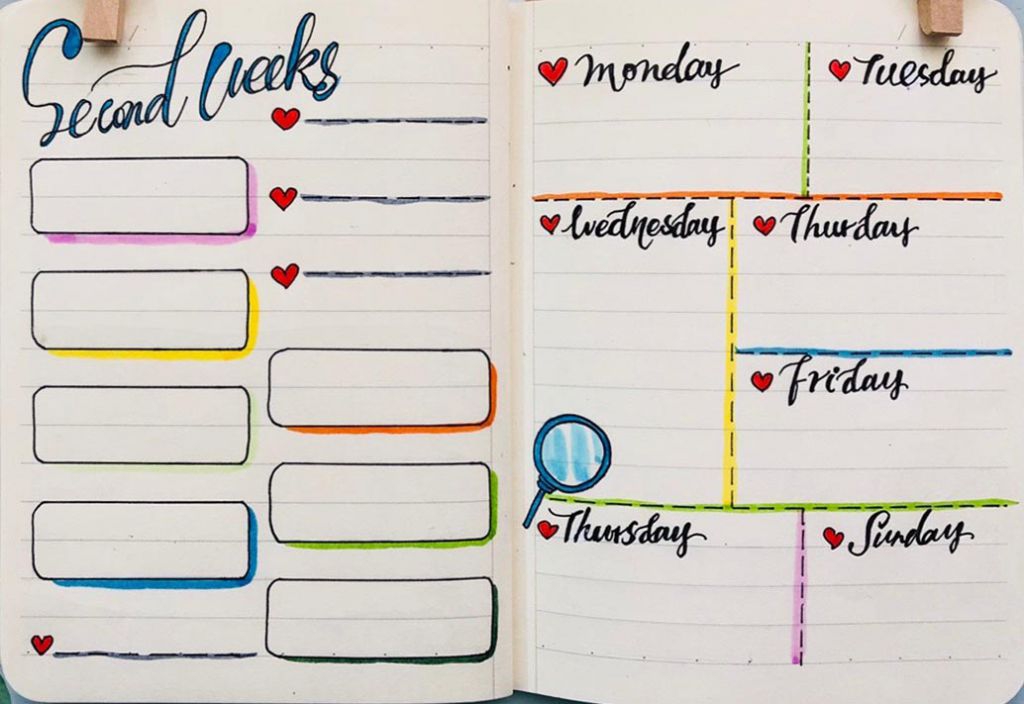 Second Weeks
Monday
Tuesday
Wednesday
Thurday
Friday
Thursday
Sunday